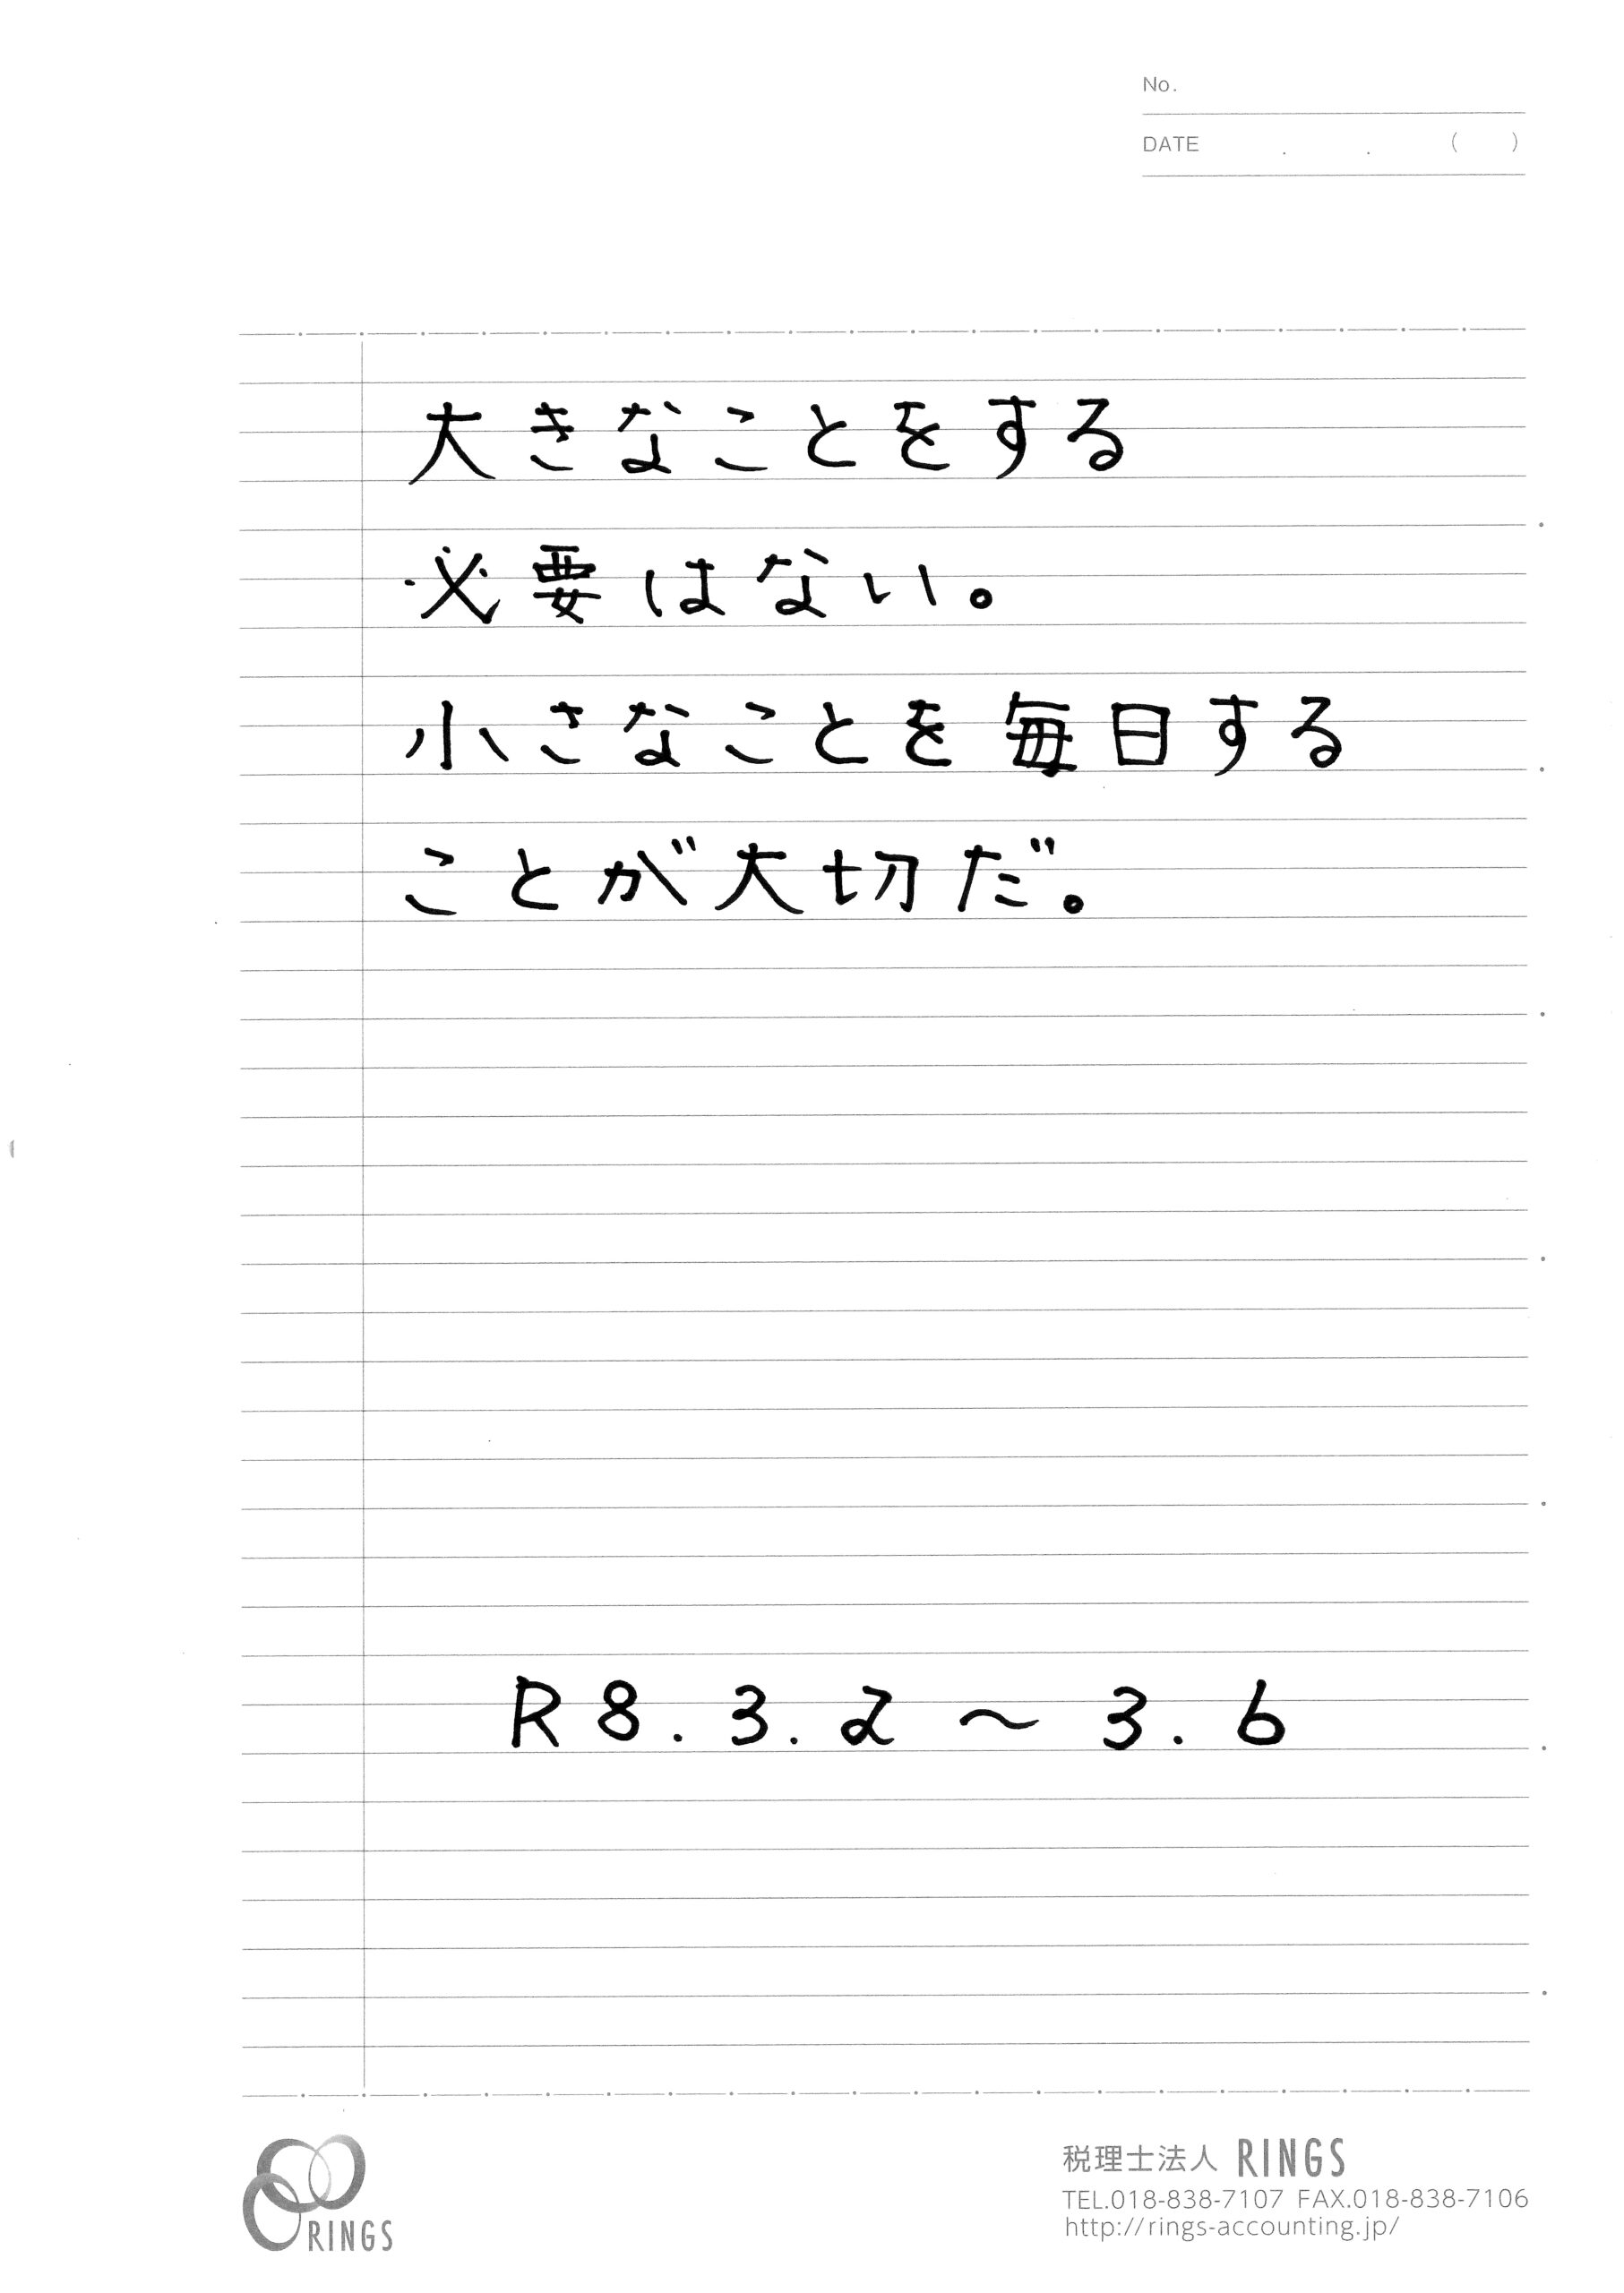 No.
DATE . . ( )
大きなことをする
必要はない。
小さなことを毎日する
ことが大切だ。
R8.3.2～3.6
RINGS
税理士法人 RINGS
TEL.018-838-7107 FAX.018-838-7106
http://rings-accounting.jp/